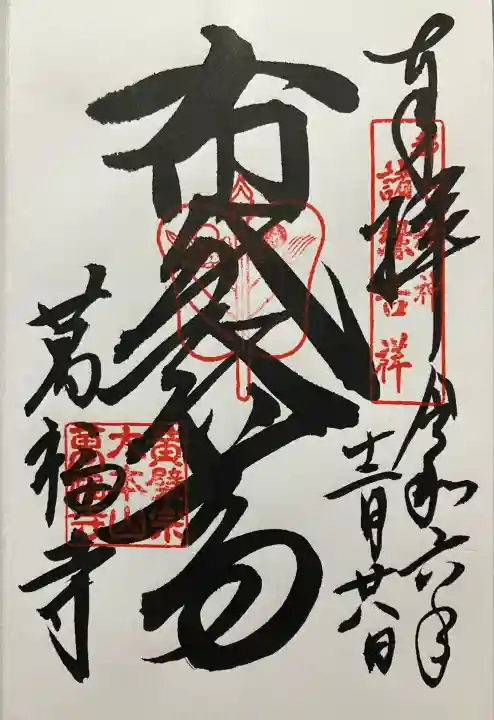 奉拝
令和六年
十二月廿八日
都七福神
諸縁吉祥
布袋尊
萬福寺
黄檗宗
大本山
萬福寺